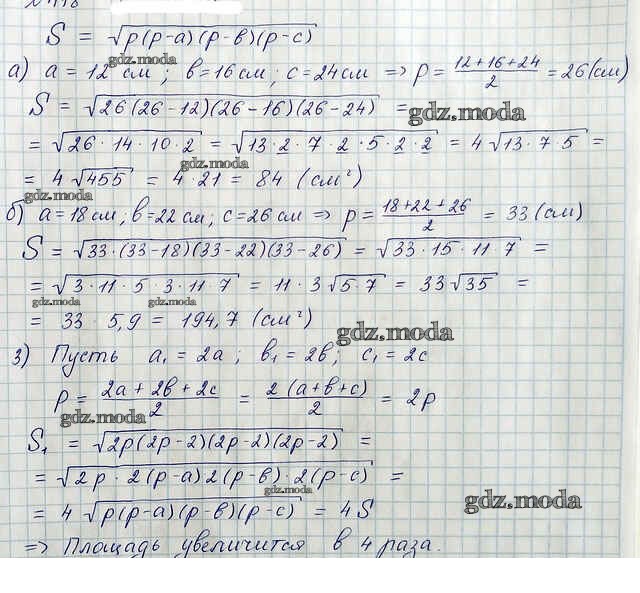 S = √p(p-a)(p-в)(p-c)
gdz.moda
а) a = 12 см ; в = 16 см ; c = 24 см ⇒ p = (12+16+24)/2 = 26 (см)
S = √26(26-12)(26-16)(26-24) =
gdz.moda
= √26·14·10·2 = √13·2·7·2·5·2·2 = 4√13·7·5 =
gdz.moda
= 4√455 = 4·21 = 84 (см²)
gdz.moda
б) a = 18 см ; в = 22 см ; c = 26 см ⇒ p = (18+22+26)/2 = 33 (см)
S = √33·(33-18)(33-22)(33-26) = √33·15·11·7 =
= √3·11·5·3·11·7 = 11·3√5·7 = 33√35 =
gdz.moda gdz.moda
= 33·5,9 = 194,7 (см²)
gdz.moda
3) Пусть a₁ = 2a ; в₁ = 2в ; c₁ = 2c
p = (2a+2в+2c)/2 = 2(a+в+c)/2 = 2p
gdz.moda
S₁ = √2p(2p-2)(2p-2)(2p-2) =
= √2p·2(p-a)2(p-в)·2(p-c) =
gdz.moda
= 4√p(p-a)(p-в)(p-c) = 4S
gdz.moda
⇒ Площадь увеличится в 4 раза.